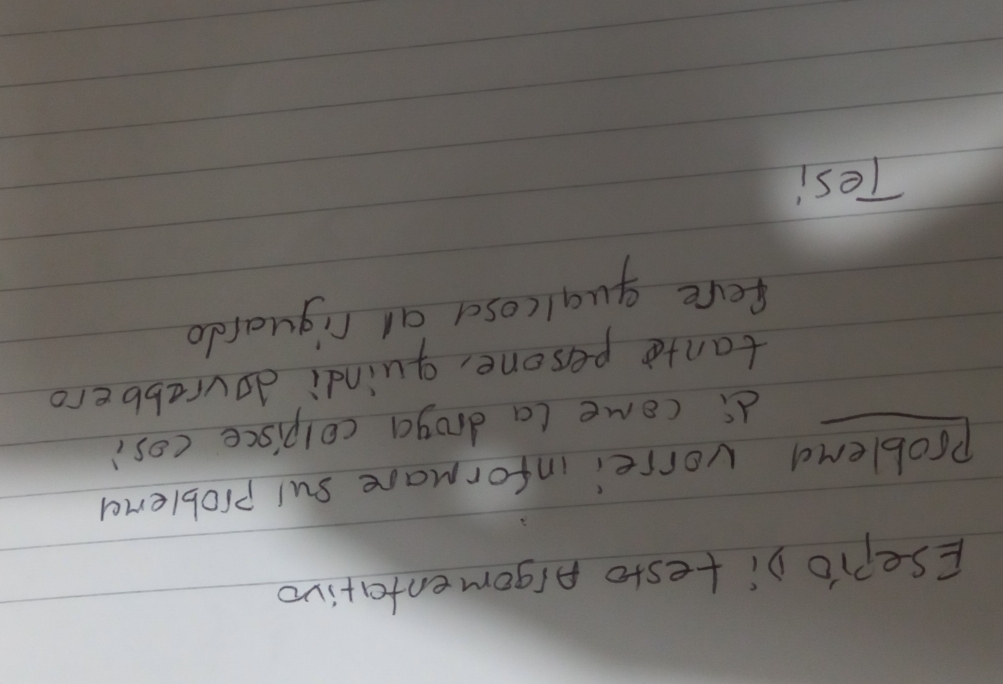 Esepio Di testo Argomentativo
Problema vorrei informare sul problema
di come la droga colpisce cosi
tante pesone, quindi dovrebbero
fere qualcosa al riguardo
Tesi